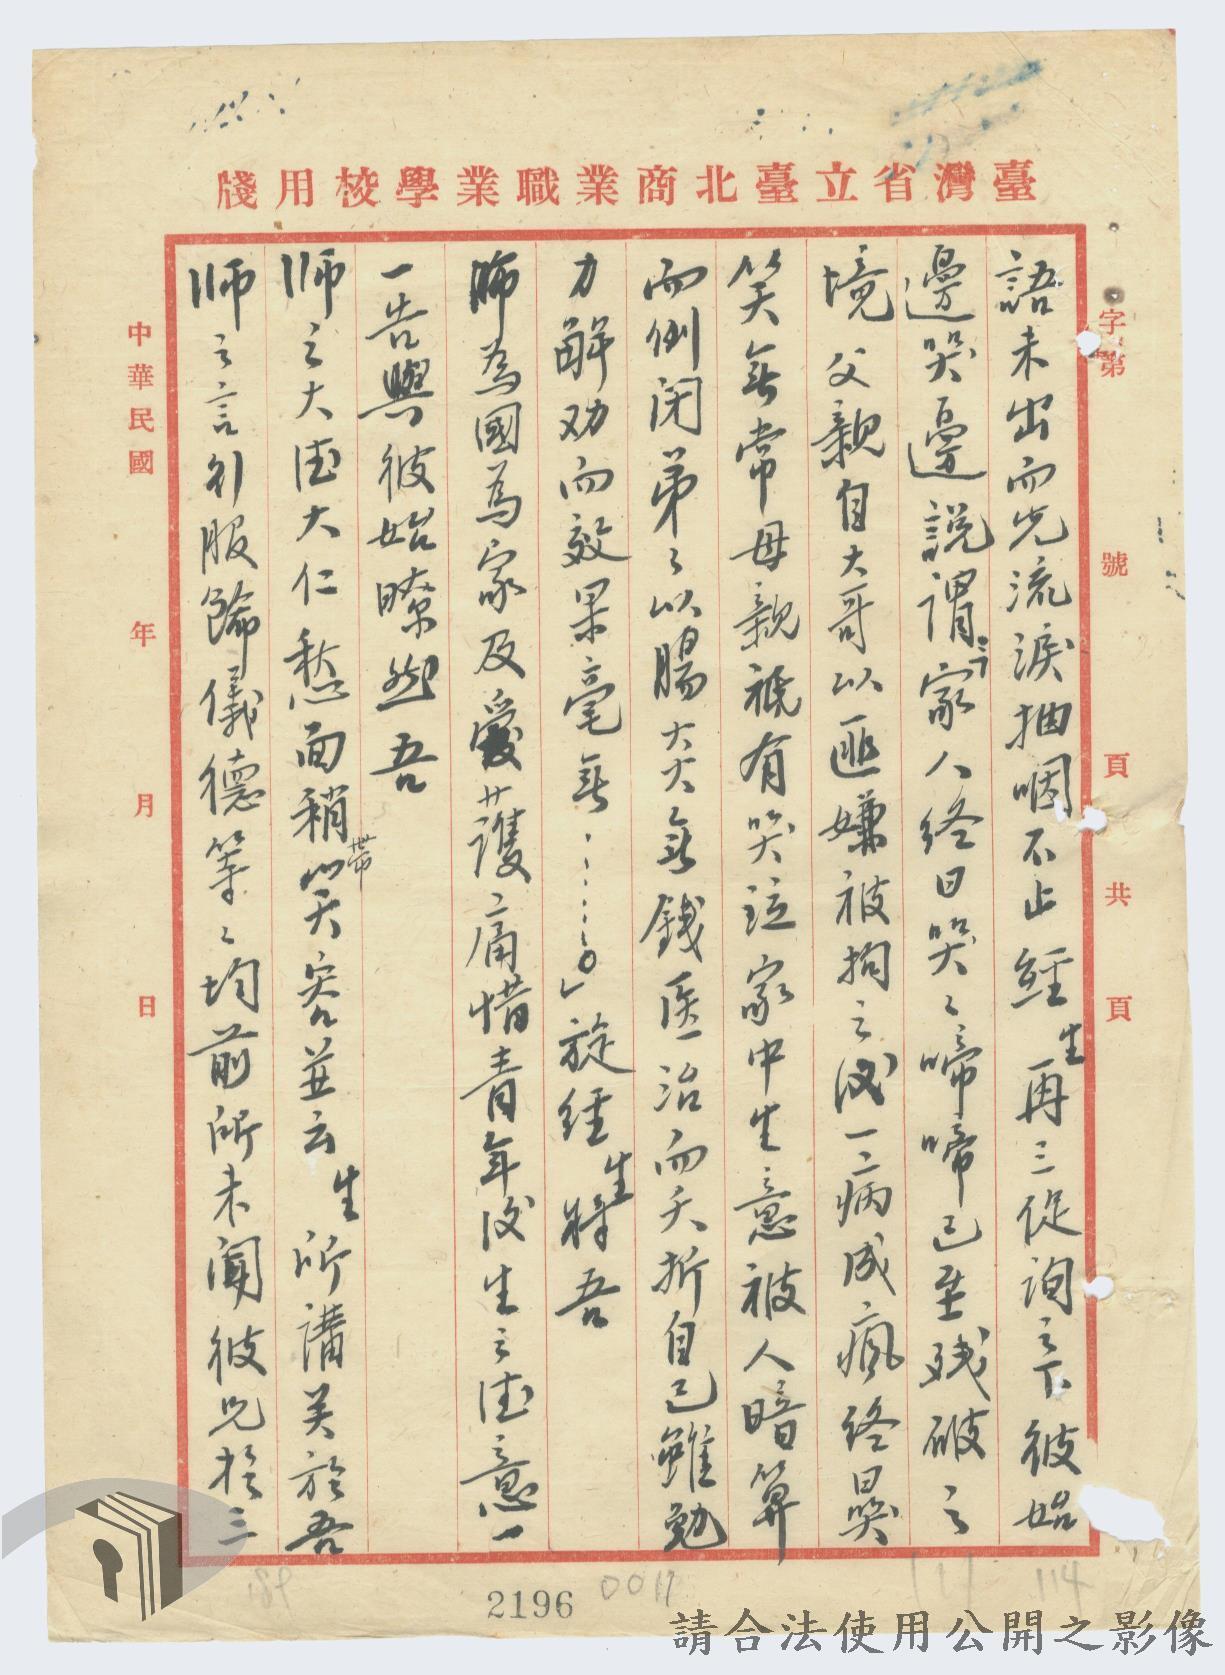 臺灣省立臺北商業職業學校用牋
字第 號 頁共 頁
語未出而先流淚抽咽不止經生再三促詢之下彼始
邊哭邊說謂「家人終日哭哭啼啼已至殘破之
境父親自大哥以匪嫌被拘之後一病成瘋終日哭
笑無常母親祇有哭泣家中生意被人暗算
而倒閉弟弟以腸炎無錢医治而夭折自己雖勉
力解劝而效果毫無……。」旋經生將吾
師為國為家及愛護痛惜青年後生之德意一
一告與彼始瞭然吾
師之大德大仁愁面稍帶笑容並云生所講关於吾
師之言行服飾儀德等等均前所未闻彼兄於三
中華民國 年 月 日
2196
0011
114
189
請合法使用公開之影像